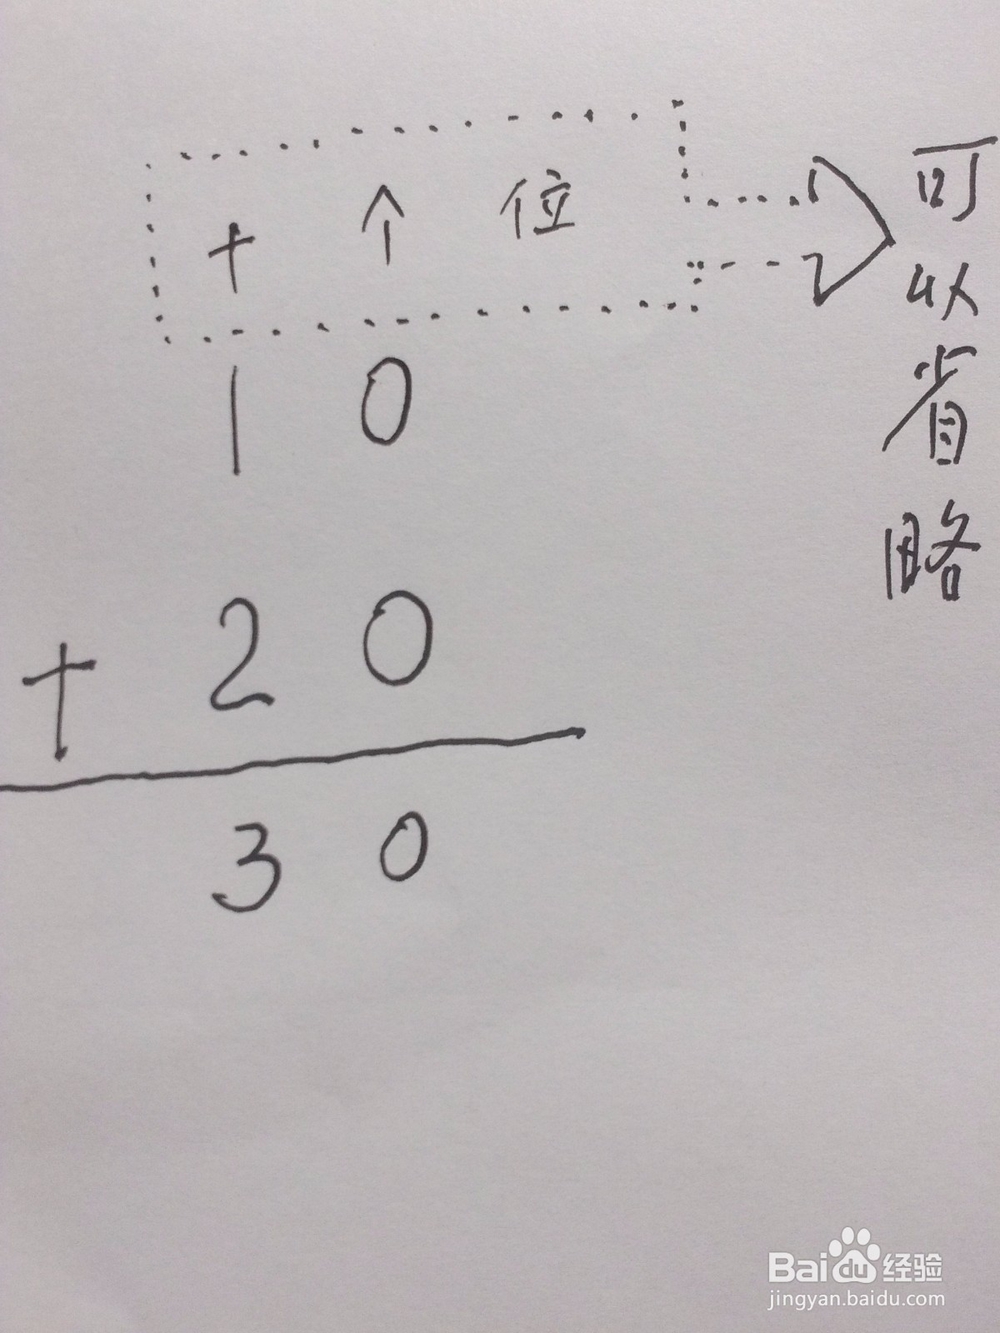 十 个 位
可以省略
1 0
+ 2 0
3 0
Baidu 经验
jingyan.baidu.com